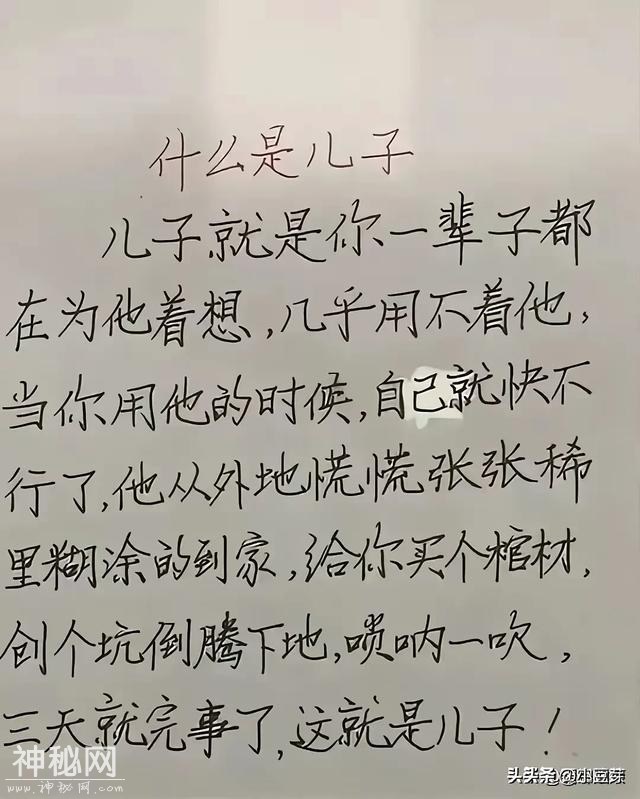 什么是儿子
儿子就是你一辈子都
在为他着想,几乎用不着他,
当你用他的时候,自己就快不
行了,他从外地慌慌张张稀
里糊涂的到家,给你买个棺材,
创个坑倒腾下地,唢呐一吹,
三天就完事了,这就是儿子!
神秘网
www.神秘网.com